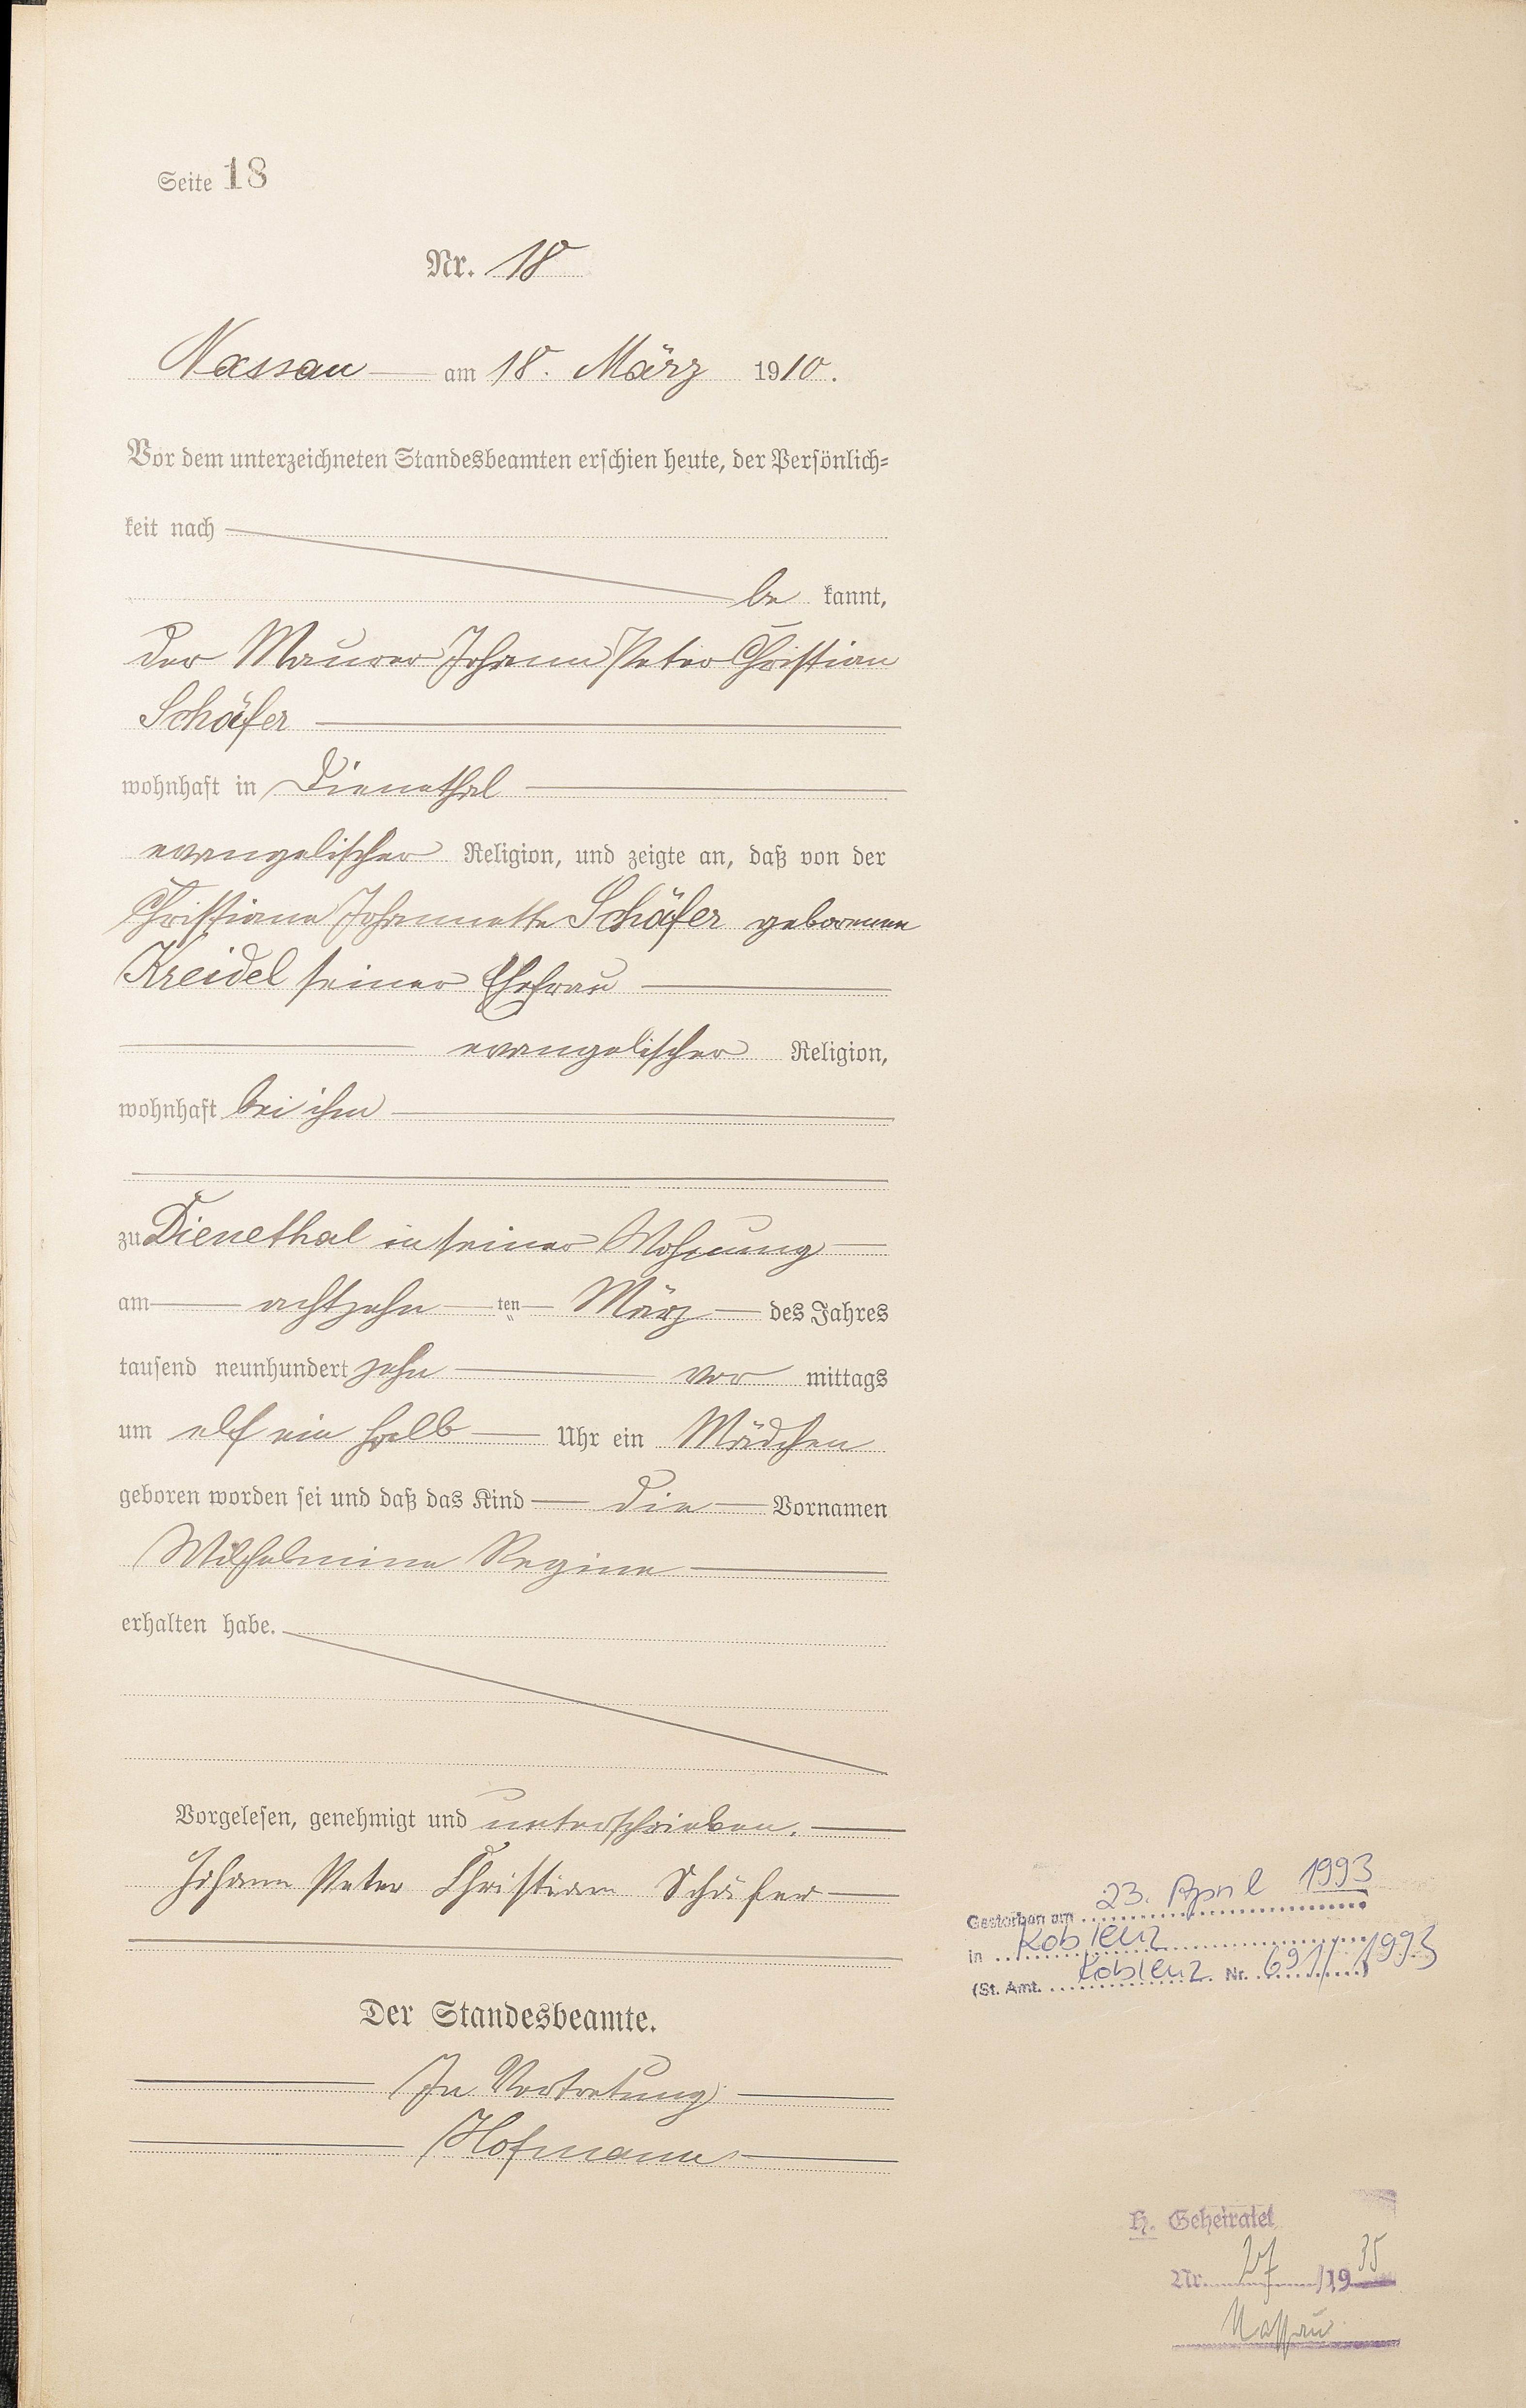 Seite 18
Nr. 18
Nassau am 18. März 1910.
Vor dem unterzeichneten Standesbeamten erschien heute, der Persönlich=
keit nach
be kannt,
der Maurer Johann Peter Christian
Schäfer
wohnhaft in Dienethal
evangelischer Religion, und zeigte an, daß von der
Christiane Johannette Schäfer geborenen
Kreidel seiner Ehefrau
evangelischer Religion,
wohnhaft bei ihm
zu Dienethal in seiner Wohnung
am achtzehn ten März des Jahres
tausend neunhundert zehn vor mittags
um elf ein halb Uhr ein Mädchen
geboren worden sei und daß das Kind die Vornamen
Wilhelmine Regine
erhalten habe.
Vorgelesen, genehmigt und unterschrieben.
Johann Peter Christian Schäfer
Der Standesbeamte.
In Vertretung
Hofmann
Gestorben am 23. April 1993
in Koblenz
(St. Amt. Koblenz Nr. 691/1993)
H. Geheiratet
Nr. 27 /1935
Nassau